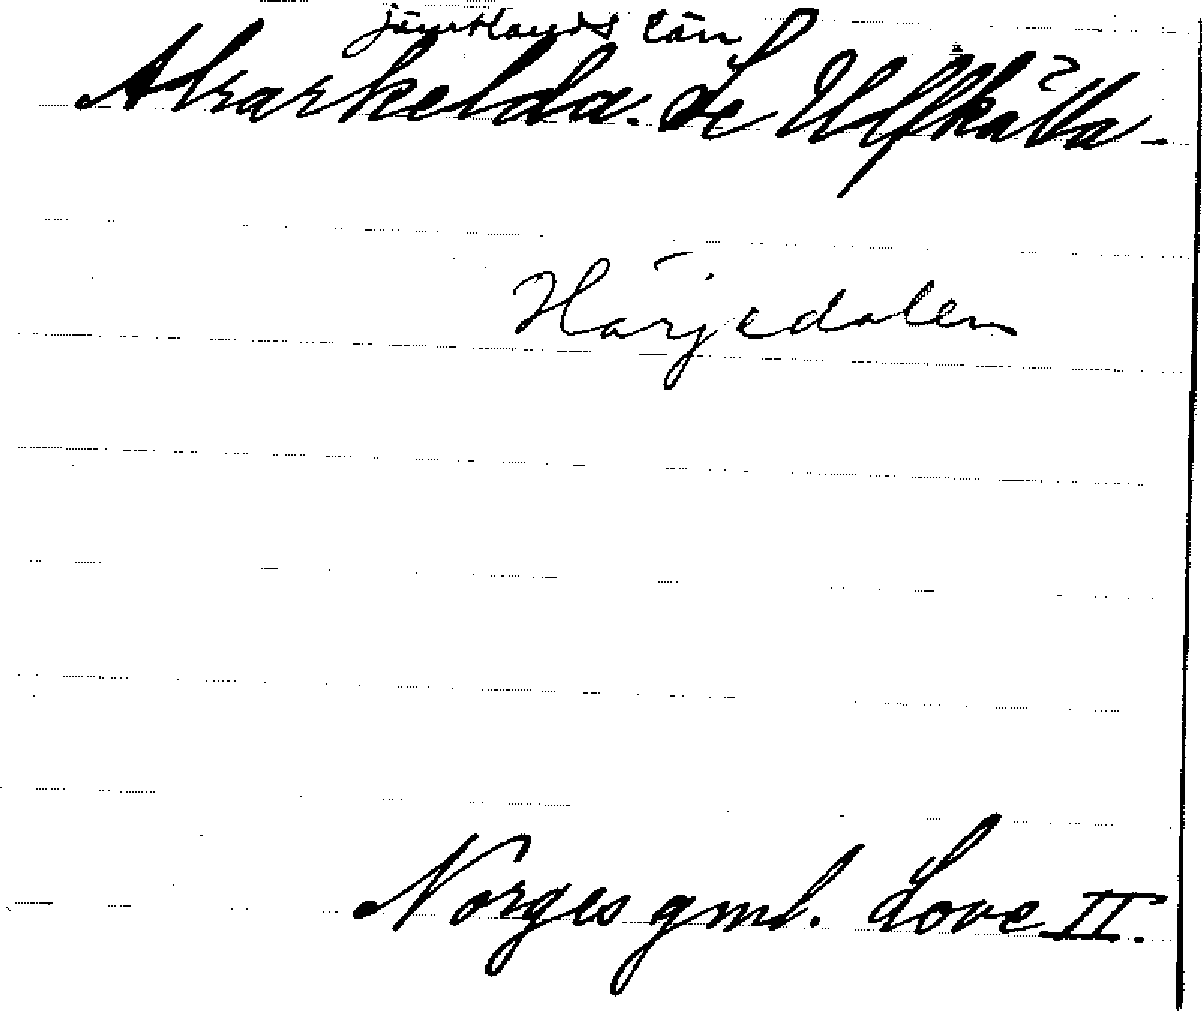 Jämtlands län
Alrarkelda. Se Ulfkälla -
Härjedalen
Norges gml. Love II.